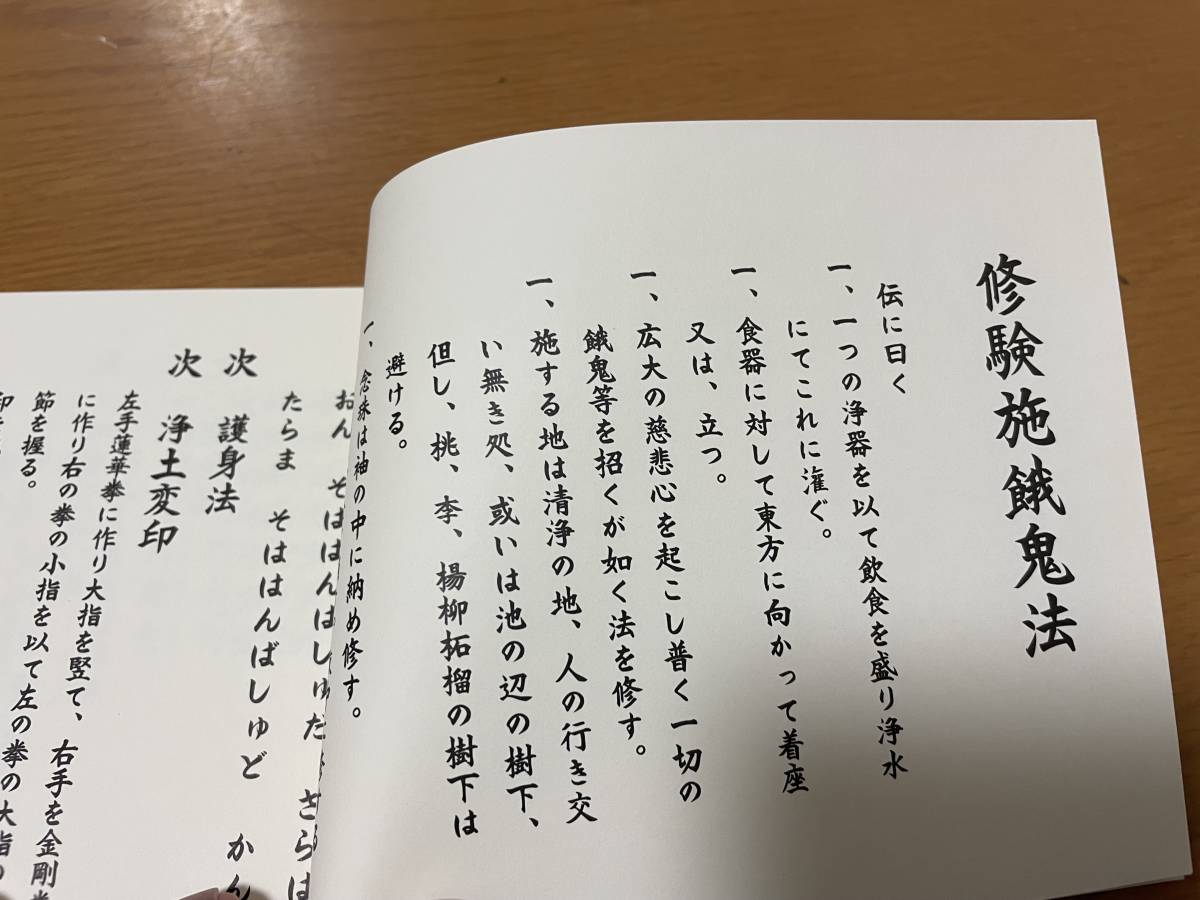 修験施餓鬼法
伝に曰く
一、一つの浄器を以て飲食を盛り浄水
にてこれに灌ぐ。
一、食器に対して東方に向かって着座
又は、立つ。
一、広大の慈悲心を起こし普く一切の
餓鬼等を招くが如く法を修す。
一、施する地は清浄の地、人の行き交
い無き処、或いは池の辺の樹下、
但し、桃、李、楊柳柘榴の樹下は
避ける。
一、念珠は袖の中に納め修す。
おん そばはんばしゅだ さらは
たらま そははんばしゅど かん
次 護身法
次 浄土変印
左手蓮華拳に作り大指を竪て、右手を金剛
に作り右の拳の小指を以て左の拳の大指の
節を握る。